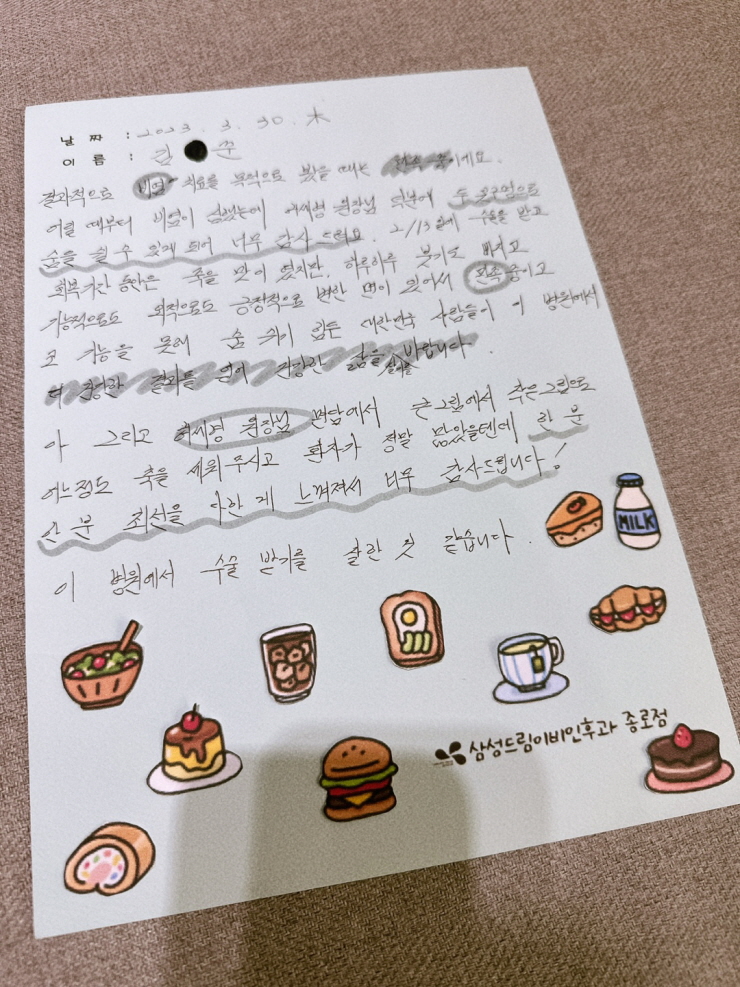 날 짜 : 2023. 3. 30. 木
이 름 : 김 준
결과적으로 비염 치료를 목적으로 봤을 때는 완속 중이에요.
어릴 때부터 비염이 심했는데 원장님 덕분에 두 콧구멍으로
숨을 쉴 수 있게 되어 너무 감사드려요. 2/13일에 수술을 받고
회복기간 동안은 죽을 맛이었지만, 하루하루 붓기도 빠지고
기능적으로도 외적으로도 긍정적으로 변한 면이 있어서 만족 중이고
코 기능을 못해 숨 쉬기 힘든 대한민국 사람들이 이 병원에서
더 건강한 결과를 얻어 건강한 삶을 바랍니다.
살기를
아 그리고 원장님 면담에서 큰그림에서 작은그림으로
어느정도 축을 세워주시고 환자가 정말 많았을텐데 한 분
한 분 최선을 다한 게 느껴져서 너무 감사드립니다!
이 병원에서 수술 받기를 잘한 것 같습니다.
MILK
삼성드림이비인후과 종로점